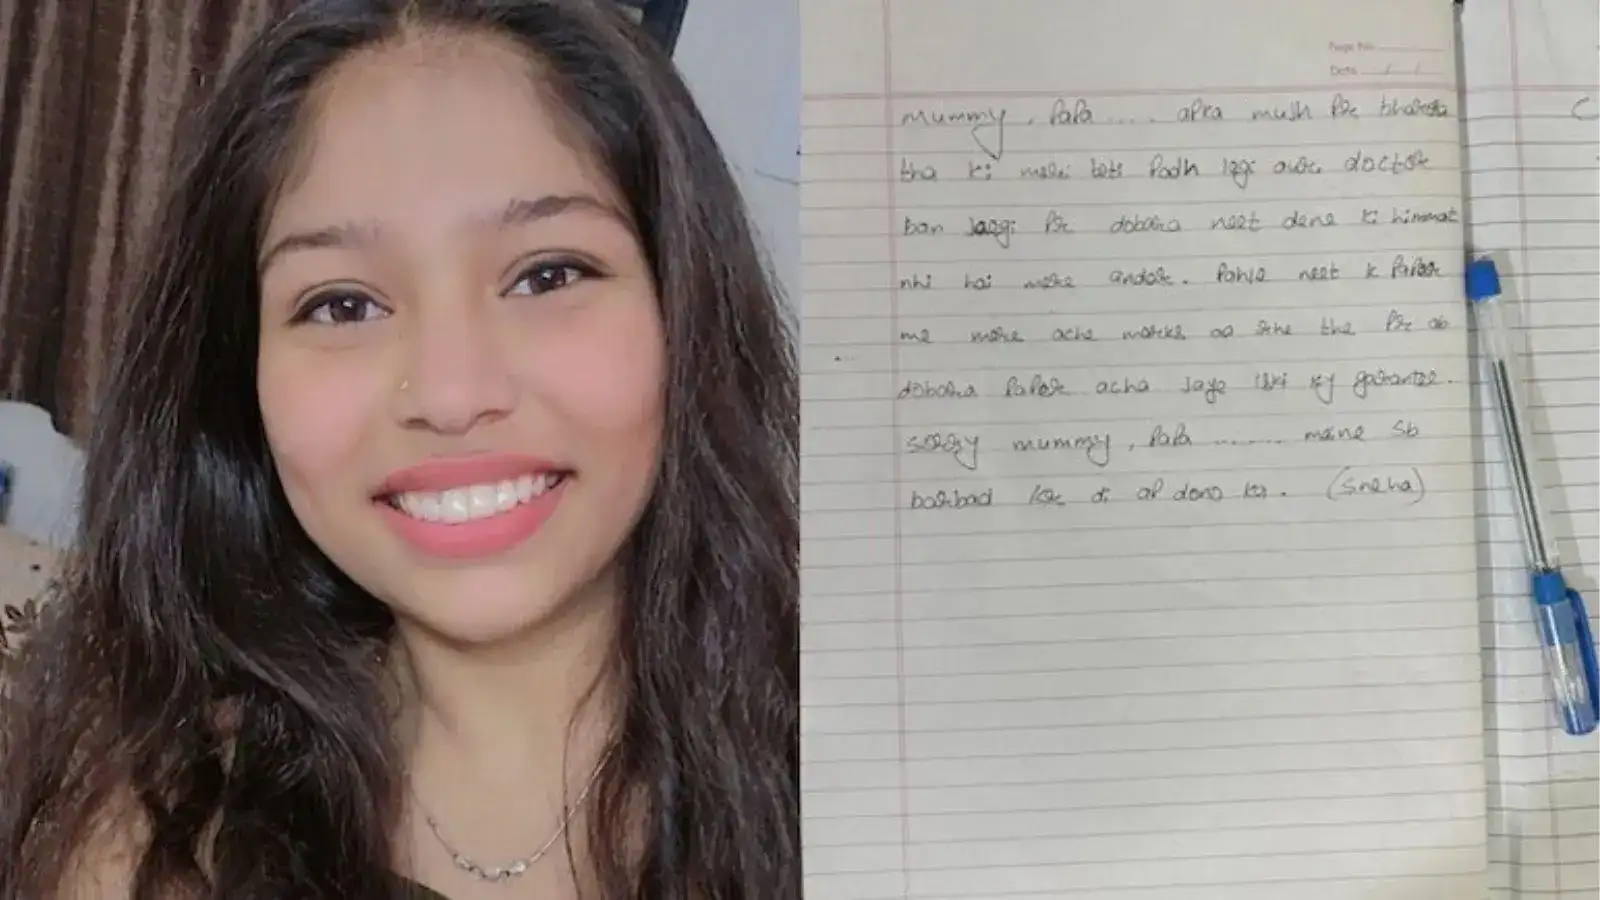 Page No.
Date / /
mummy, papa .... apka mujh pr bharosa
tha ki meri beti padh legi aur doctor
ban jaegi pr dobara neet dene ki himmat
nhi hai mere andar. Pahle neet k paper
me mere ache marks aa rhe the pr ab
dobara paper acha jaye iski ky garantee.
sorry mummy, papa ....... maine sb
barbad kr di ap dono ka. (Sneha)